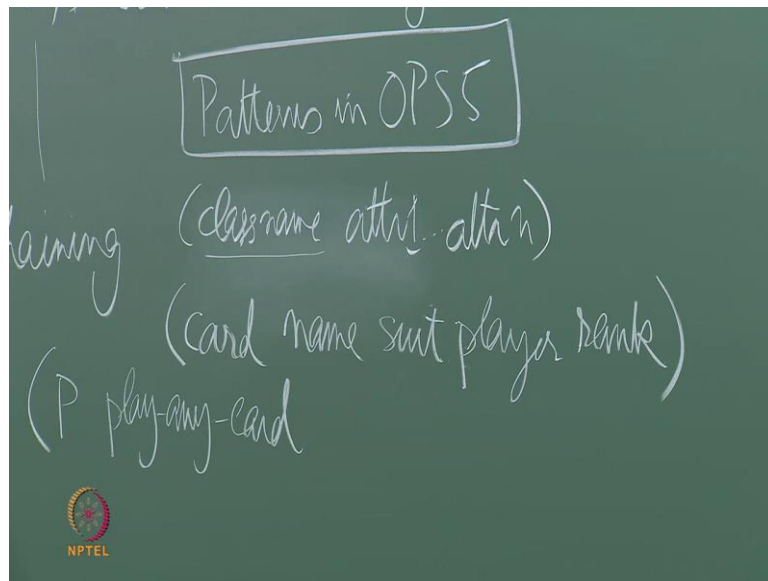 Patterns in OPS5
(classname attr1...attrn)
(card name suit player rank)
(P play-any-card
NPTEL